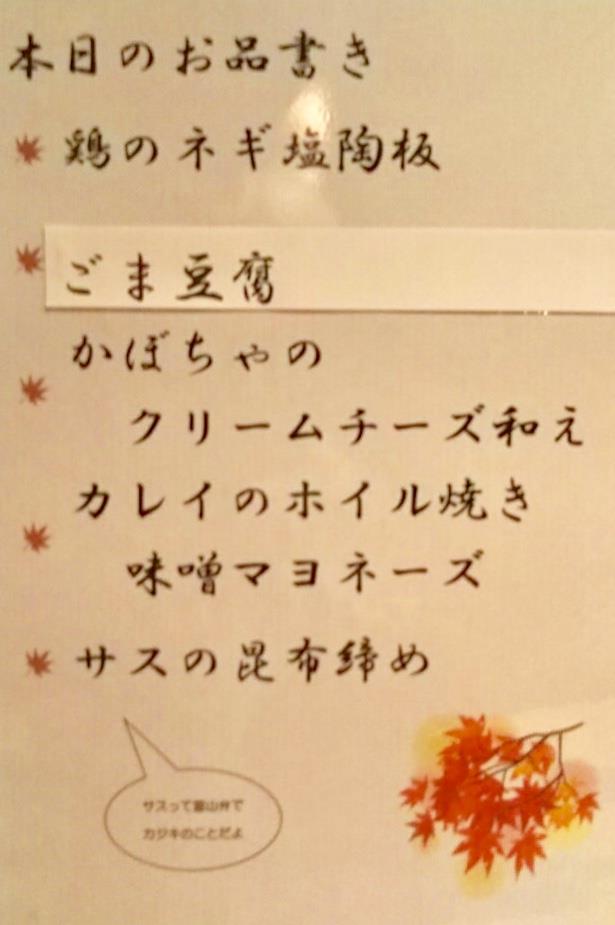 本日のお品書き
鶏のネギ塩陶板
ごま豆腐
かぼちゃの
クリームチーズ和え
カレイのホイル焼き
味噌マヨネーズ
サスの昆布締め
サスって富山弁で
カジキのことだよ